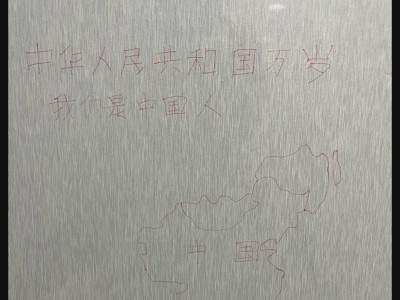 中华人民共和国万岁
我们是中国人
中国